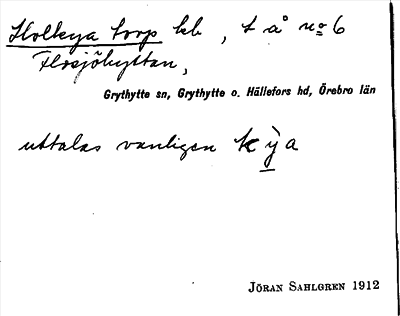 Holkya torp kb, t å no 6
Flosjöhyttan,
Grythytte sn, Grythytte o. Hällefors hd, Örebro län
uttalas vanligen kỳa
JÖRAN SAHLGREN 1912